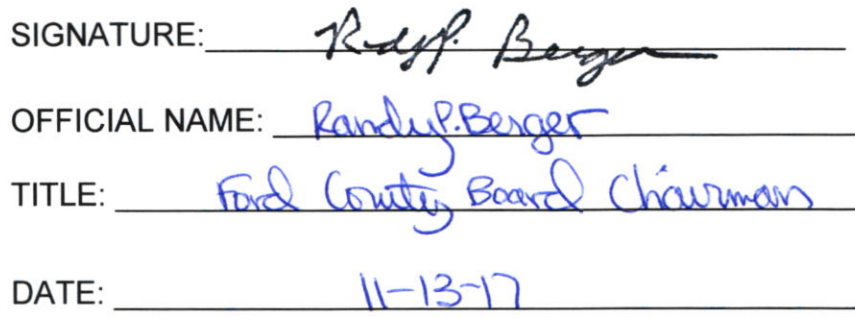 SIGNATURE: Randy P. Berger
OFFICIAL NAME: Randy P. Berger
TITLE: Ford County Board Chairman
DATE: 11-13-17